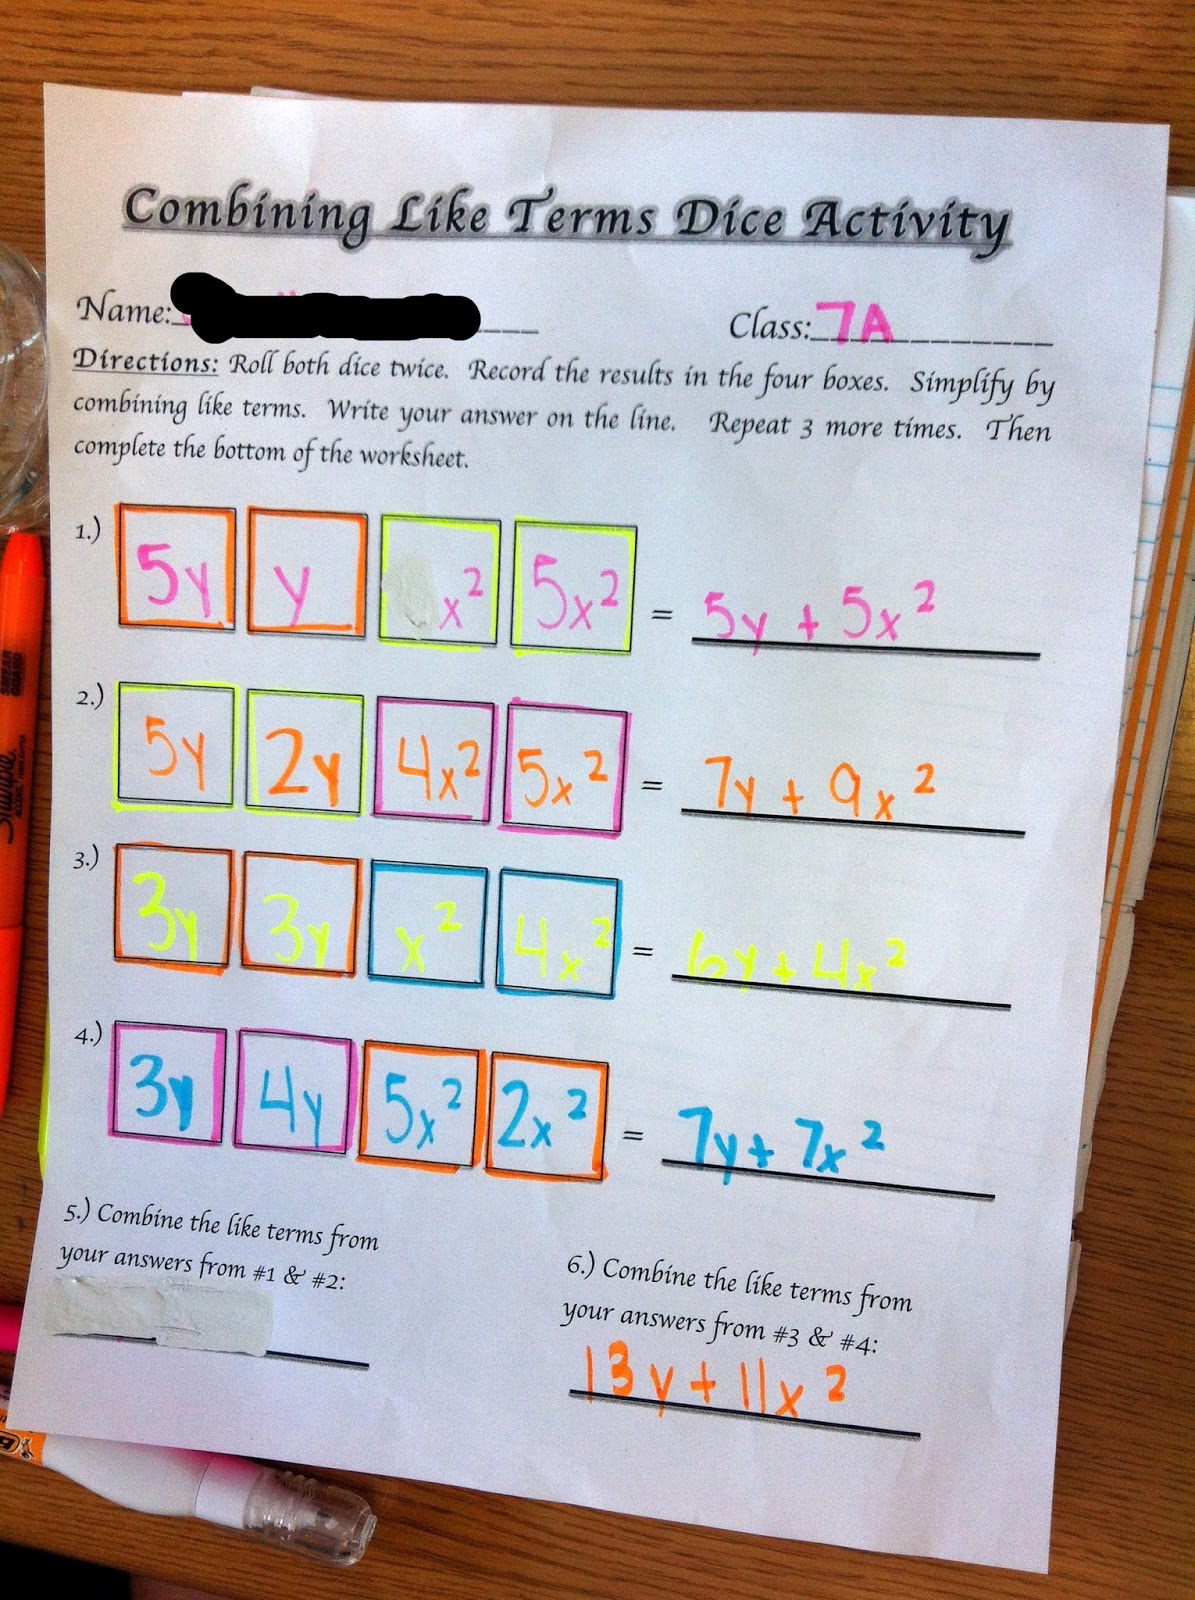 Combining Like Terms Dice Activity
Name: Class: 7A
Directions: Roll both dice twice. Record the results in the four boxes. Simplify by
combining like terms. Write your answer on the line. Repeat 3 more times. Then
complete the bottom of the worksheet.
1.) 5y y x² 5x² = 5y + 5x²
2.) 5y 2y 4x² 5x² = 7y + 9x²
3.) 3y 3y x² 4x² = 6y + 4x²
4.) 3y 4y 5x² 2x² = 7y + 7x²
5.) Combine the like terms from
your answers from #1 & #2:
6.) Combine the like terms from
your answers from #3 & #4:
13y + 11x²
Sharpie
SMEAR GUARD